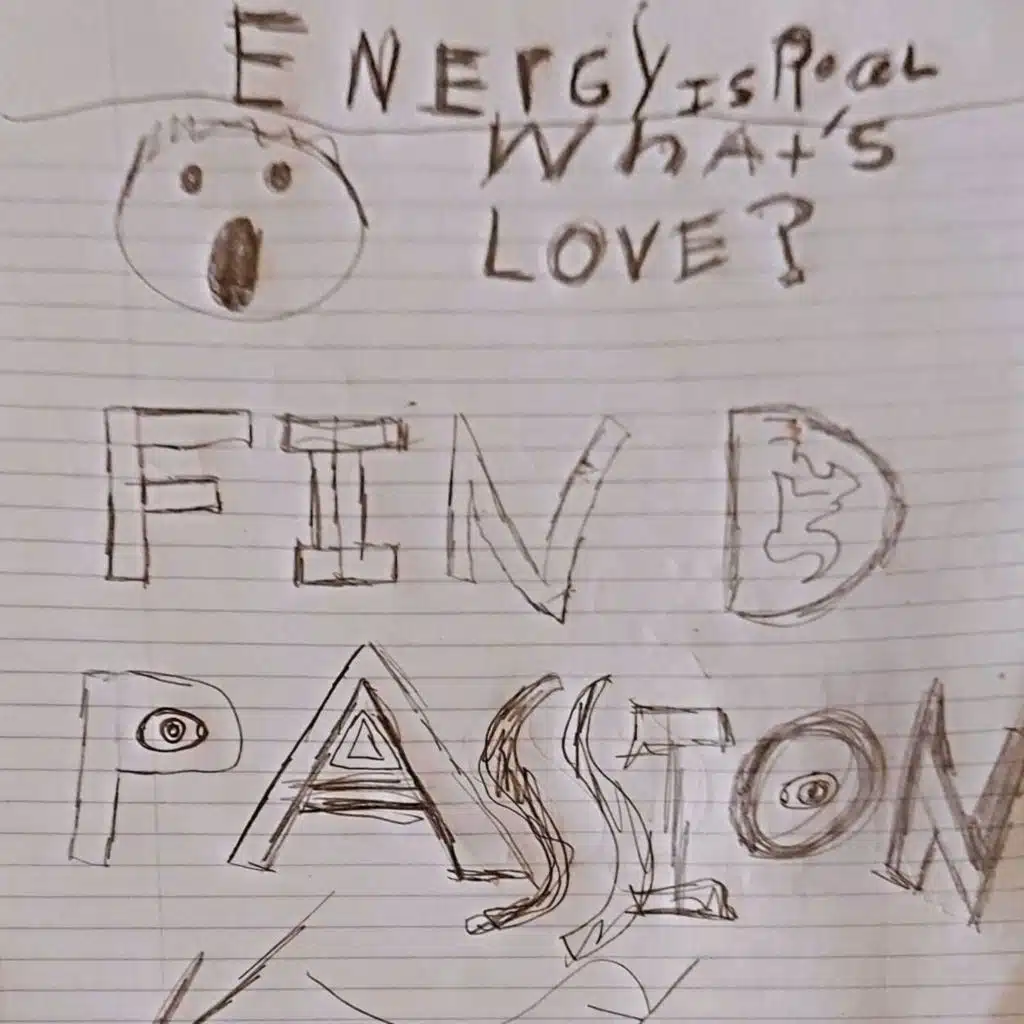 ENErGY IS ReaL
WhAt'S
LOVE?
FIND
PASSION